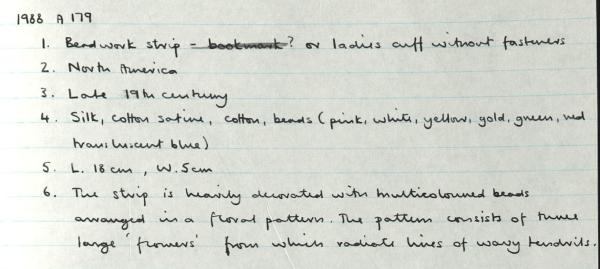 1988 A 179
1. Beadwork strip - bookmark? or ladies cuff without fasteners
2. North America
3. Late 19th century
4. Silk, cotton satine, cotton, beads (pink, white, yellow, gold, green, red
translucent blue)
5. L. 18cm, W. 5cm
6. The strip is heavily decorated with multicoloured beads
arranged in a floral pattern. The pattern consists of three
large 'flowers' from which radiate lines of wavy tendrils.